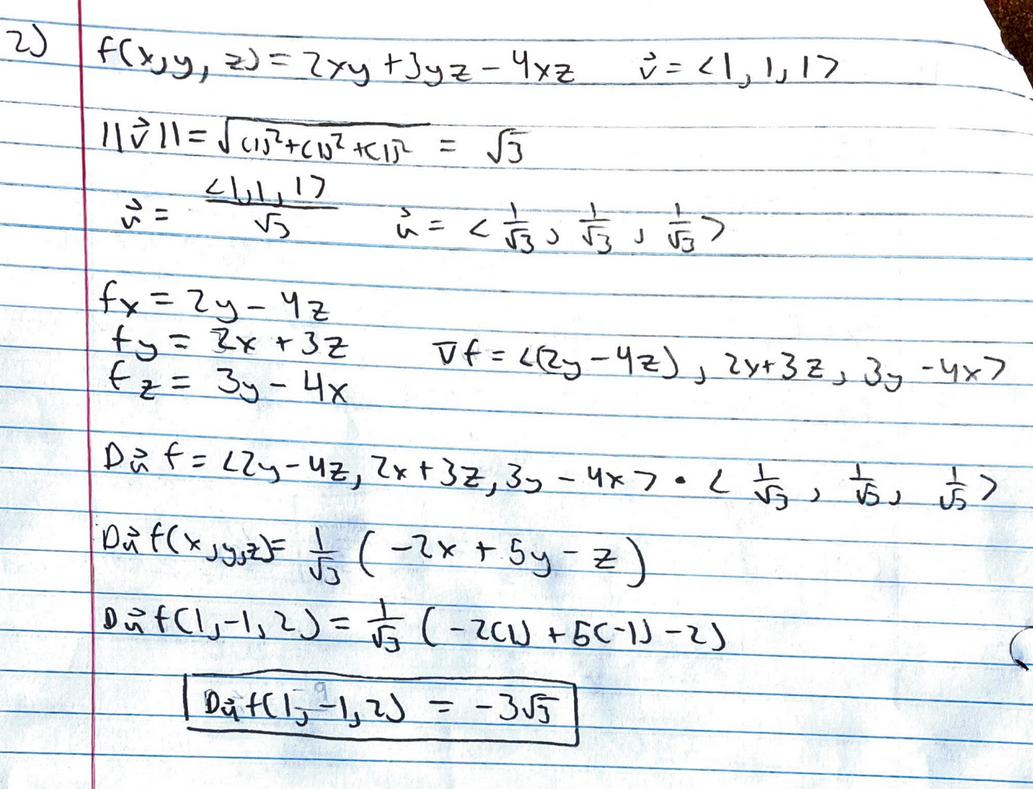 2) f(x,y, z) = 2xy + 3yz - 4xz v⃗ = <1, 1, 1>
||v⃗|| = √((1)²+(1)²+(1)²) = √3
u⃗ = <1,1,1>/√3 u⃗ = <1/√3, 1/√3, 1/√3>
fx = 2y - 4z
fy = 2x + 3z ∇f = <(2y - 4z), 2x+3z, 3y - 4x>
fz = 3y - 4x
Du⃗ f = <2y - 4z, 2x + 3z, 3y - 4x> • <1/√3, 1/√3, 1/√3>
Du⃗ f(x,y,z) = 1/√3 (-2x + 5y - z)
Du⃗ f(1,-1,2) = 1/√3 (-2(1) + 5(-1) - 2)
Du⃗ f(1,-1,2) = -3√3